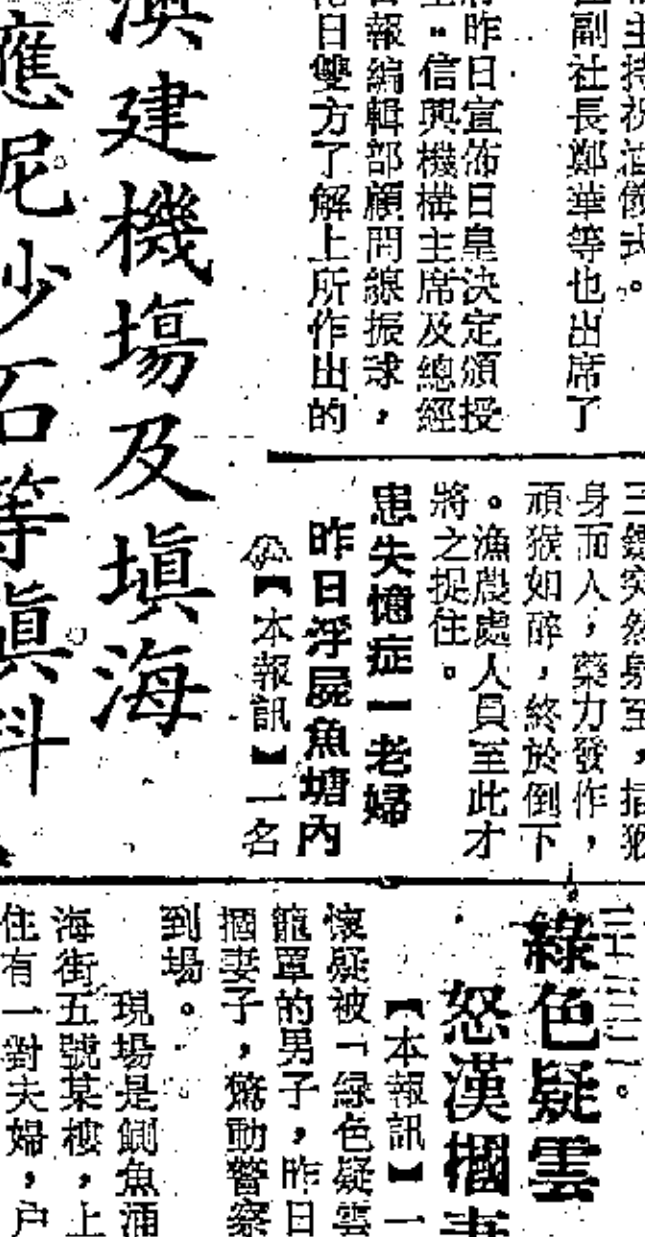 主持祝酒儀式。
副社長鄭華等也出席了
昨日宣佈日皇決定頒授
。信興機構主席及總經
報編輯部顧問線振球，
日雙方了解上所作出的
澳建機塲及填海
應尼沙石等填料
三鏢突然射至，插猴
身而人，藥力發作，
頑猴如醉，終於倒下
。漁農處人員至此才
將之捉住。
患失憶症一老婦
昨日浮屍魚塘內
【本報訊】一名
三二三一。
綠色疑雲
怒漢摑妻
【本報訊】一
懷疑被「綠色疑雲
籠罩的男子，昨日
摑妻子，驚動警察
到場。
現場是鰂魚涌
海街五號某樓，上
住有一對夫婦，户